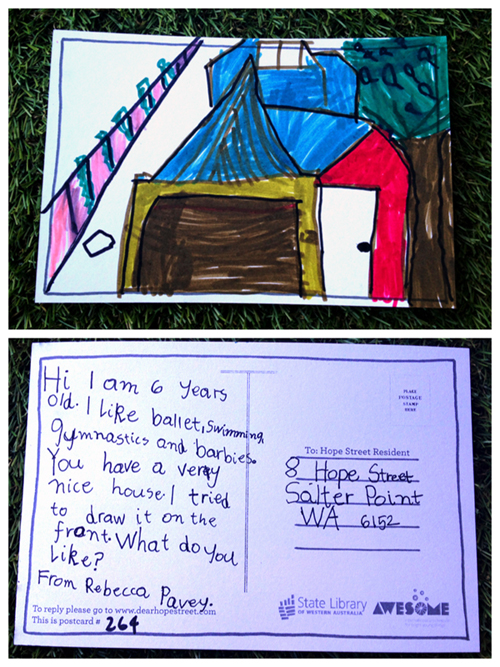 Hi I am 6 years
old. I like ballet, swimming,
gymnastics and barbies.
You have a very
nice house. I tried
to draw it on the
front. What do you
like?
From Rebecca Pavey.
To reply please go to www.dearhopestreet.com
This is postcard # 264
PLACE
POSTAGE
STAMP
HERE
To: Hope Street Resident
8 Hope Street
Salter Point
WA 6152
State Library
OF WESTERN AUSTRALIA
AWESOME